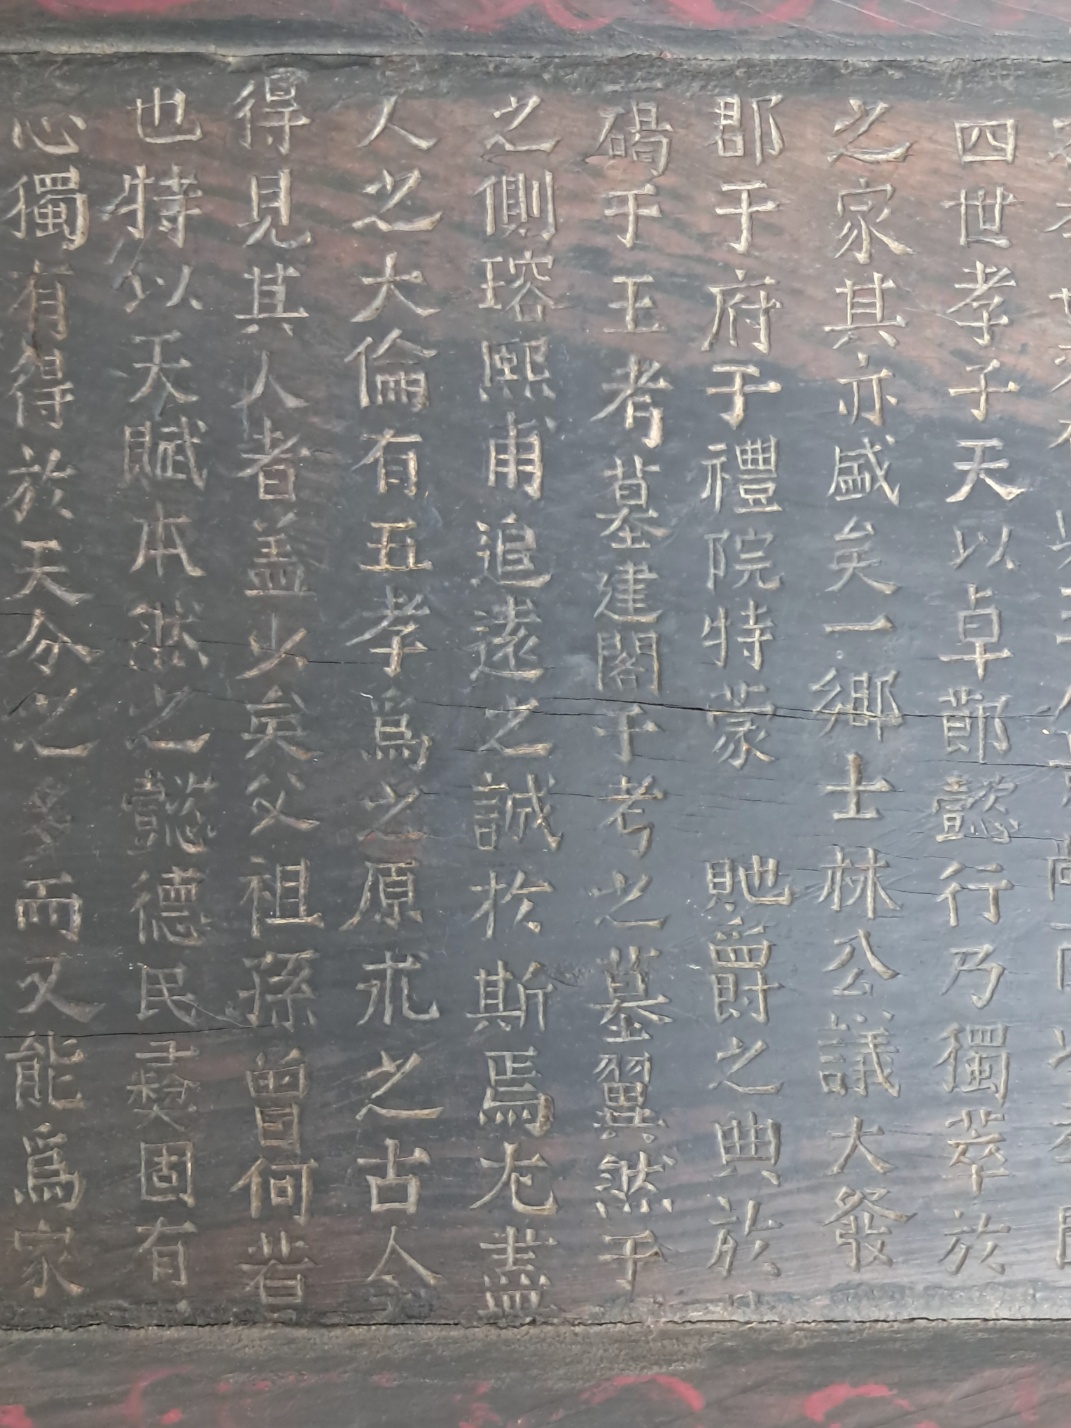 四世孝子天以卓節懿行乃獨萃於
之家其亦盛矣一鄉士林公議大發
郡于府于禮院特蒙 貤爵之典於
碣于王考墓建閣于考之墓翼然乎
之側瑢熙甫追遠之誠於斯焉尤盡
人之大倫有五孝爲之原求之古人
得見其人者盖少矣父祖孫曾何若
也特以天賦本然之懿德民彛固有
心獨有得於天分之多而又能爲家